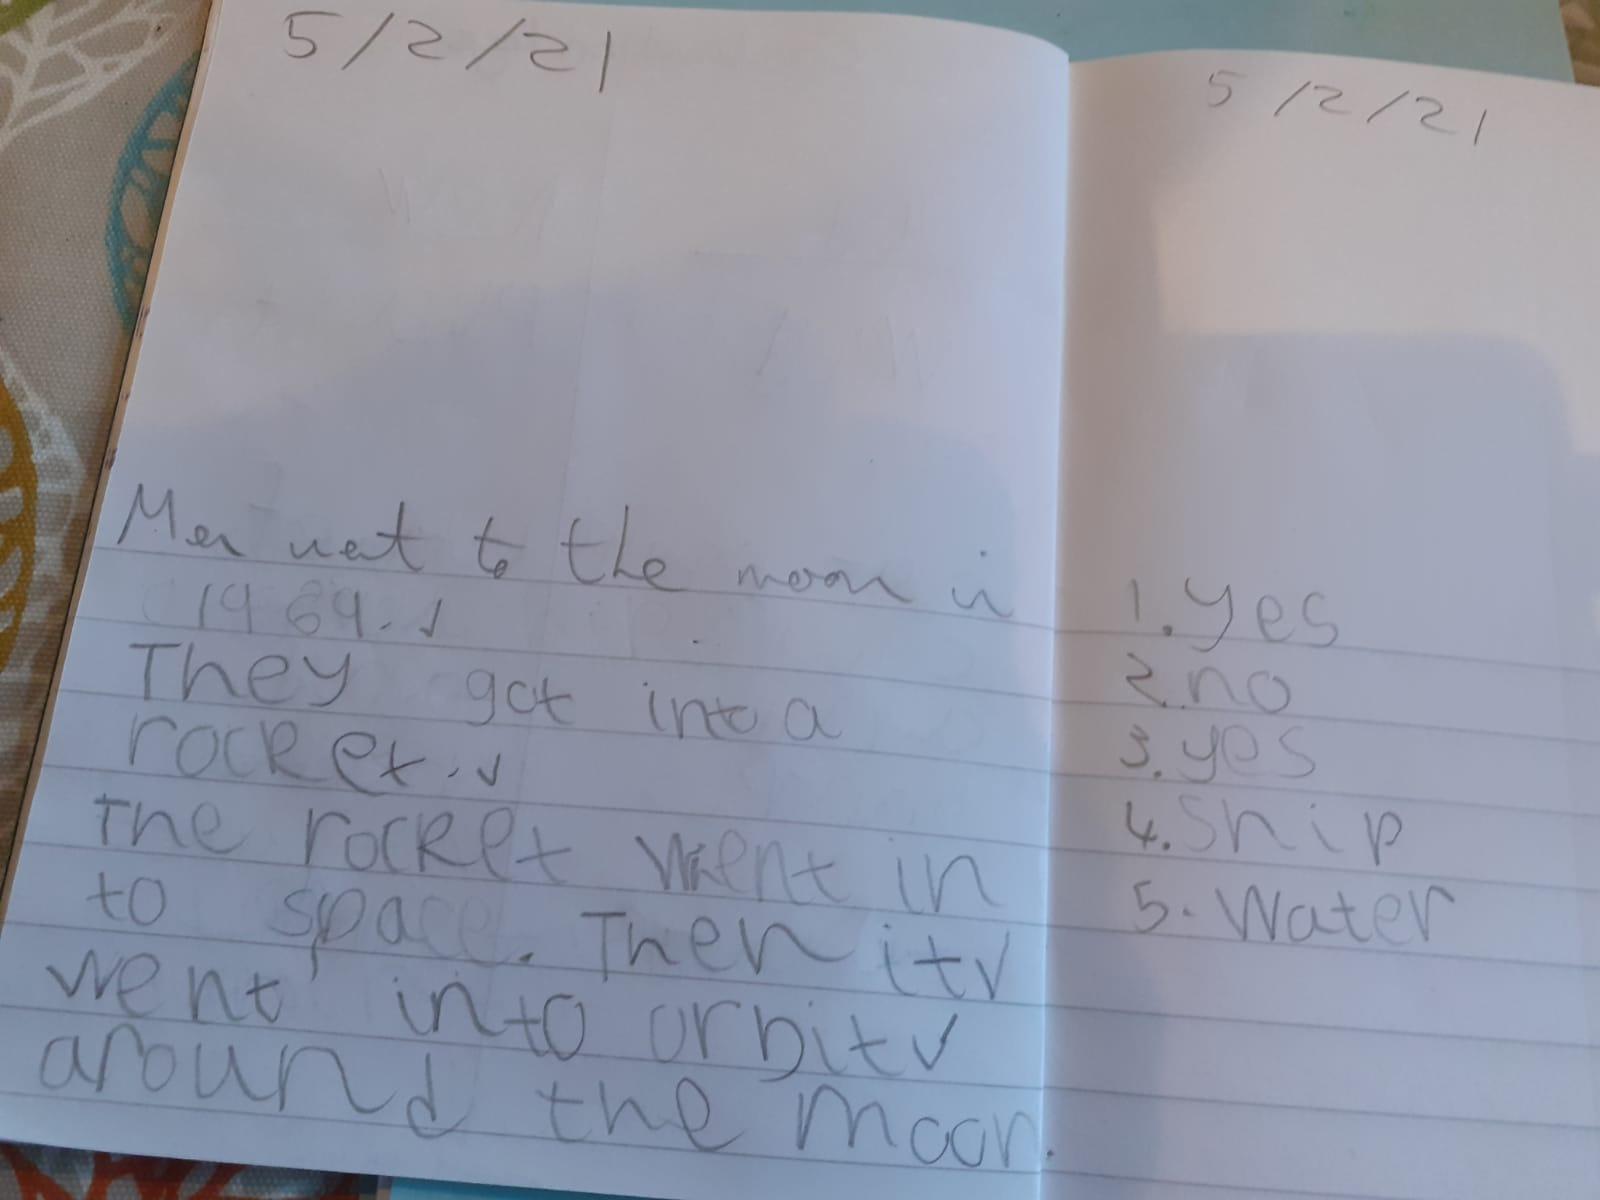 5/2/21
Men went to the moon in
1969. ✓
They got into a
rocket. ✓
The rocket went in
to space. Then it ✓
went into orbit ✓
around the moon.
5/2/21
1. yes
2. no
3. yes
4. Ship
5. Water